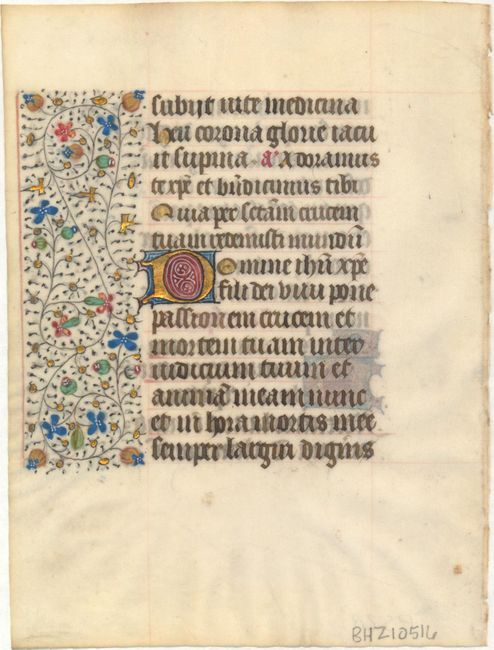 subijt vite medicina
Heu corona glorie iacu
it supina. a' Adoramus
te xpē et bn̄dicimus tibi
Quia per sctām crucem
tuam redemisti mundū
Domine ihū xpē
fili dei viui pone
passionem crucem et
mortem tuam inter
iudicium tuum et
animā meam nunc
et in hora mortis mee
semper largiri digneris
BHZ10516